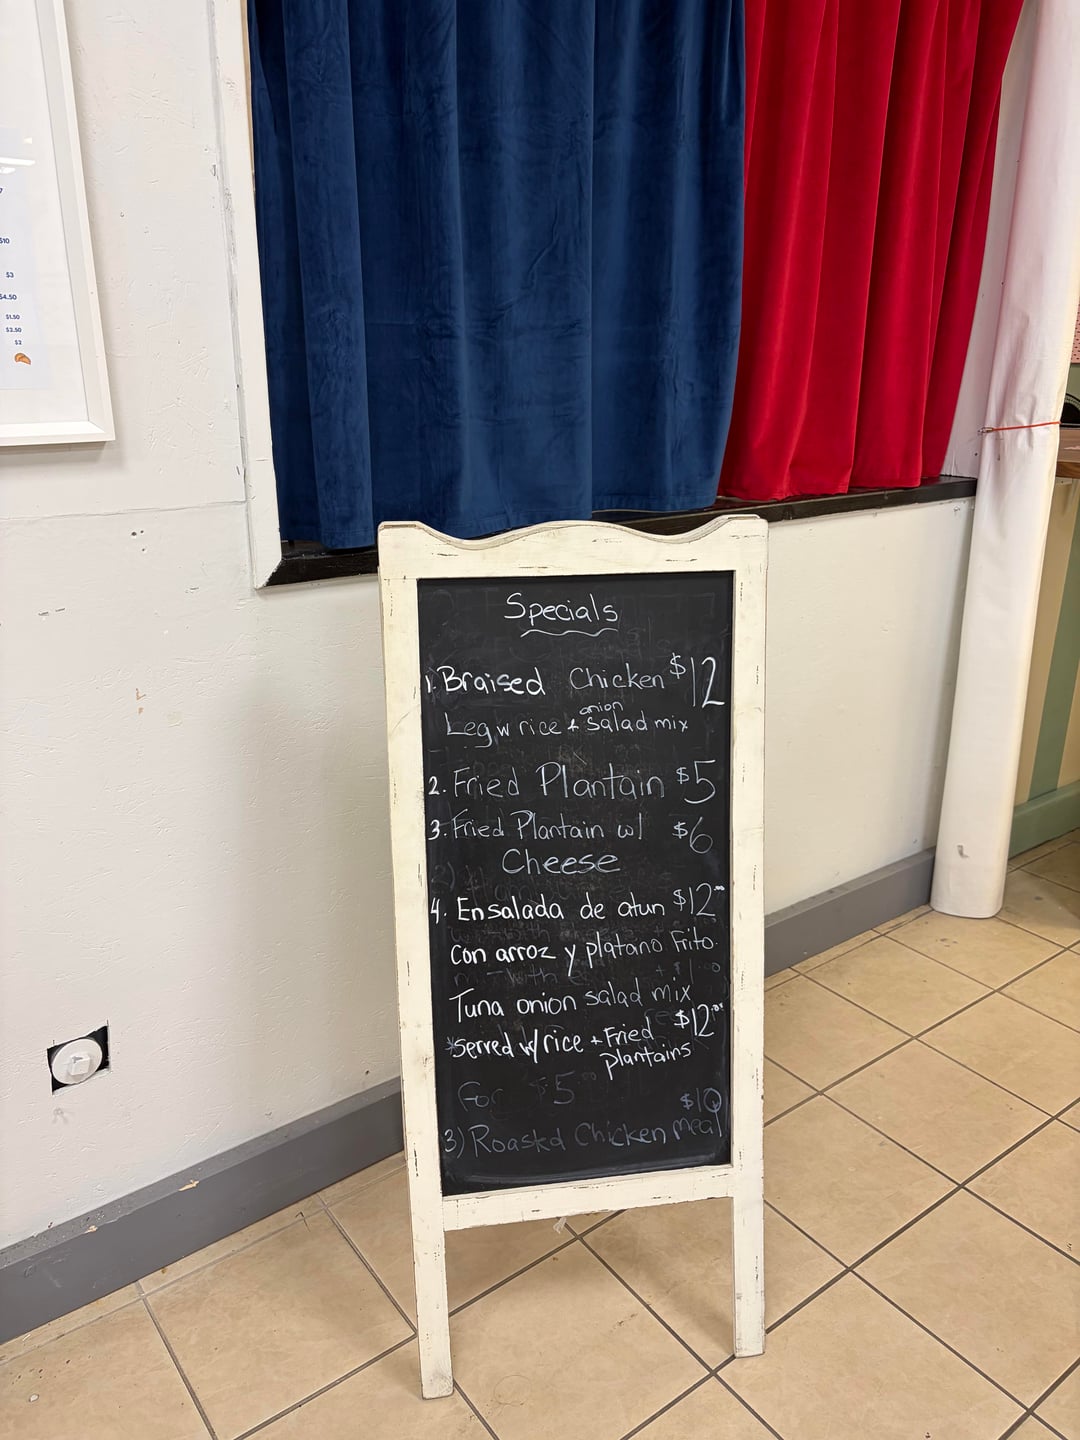 $10
$3
$4.50
$1.50
$2.50
$2
Specials
1. Braised Chicken $12
Leg w rice + onion salad mix
2. Fried Plantain $5
3. Fried Plantain w/ $6
Cheese
4. Ensalada de atun $12.00
con arroz y platano Frito.
Tuna onion salad mix
*served w/ rice + Fried $12.00
plantains
For $5.00
$10
3) Roasted Chicken meal